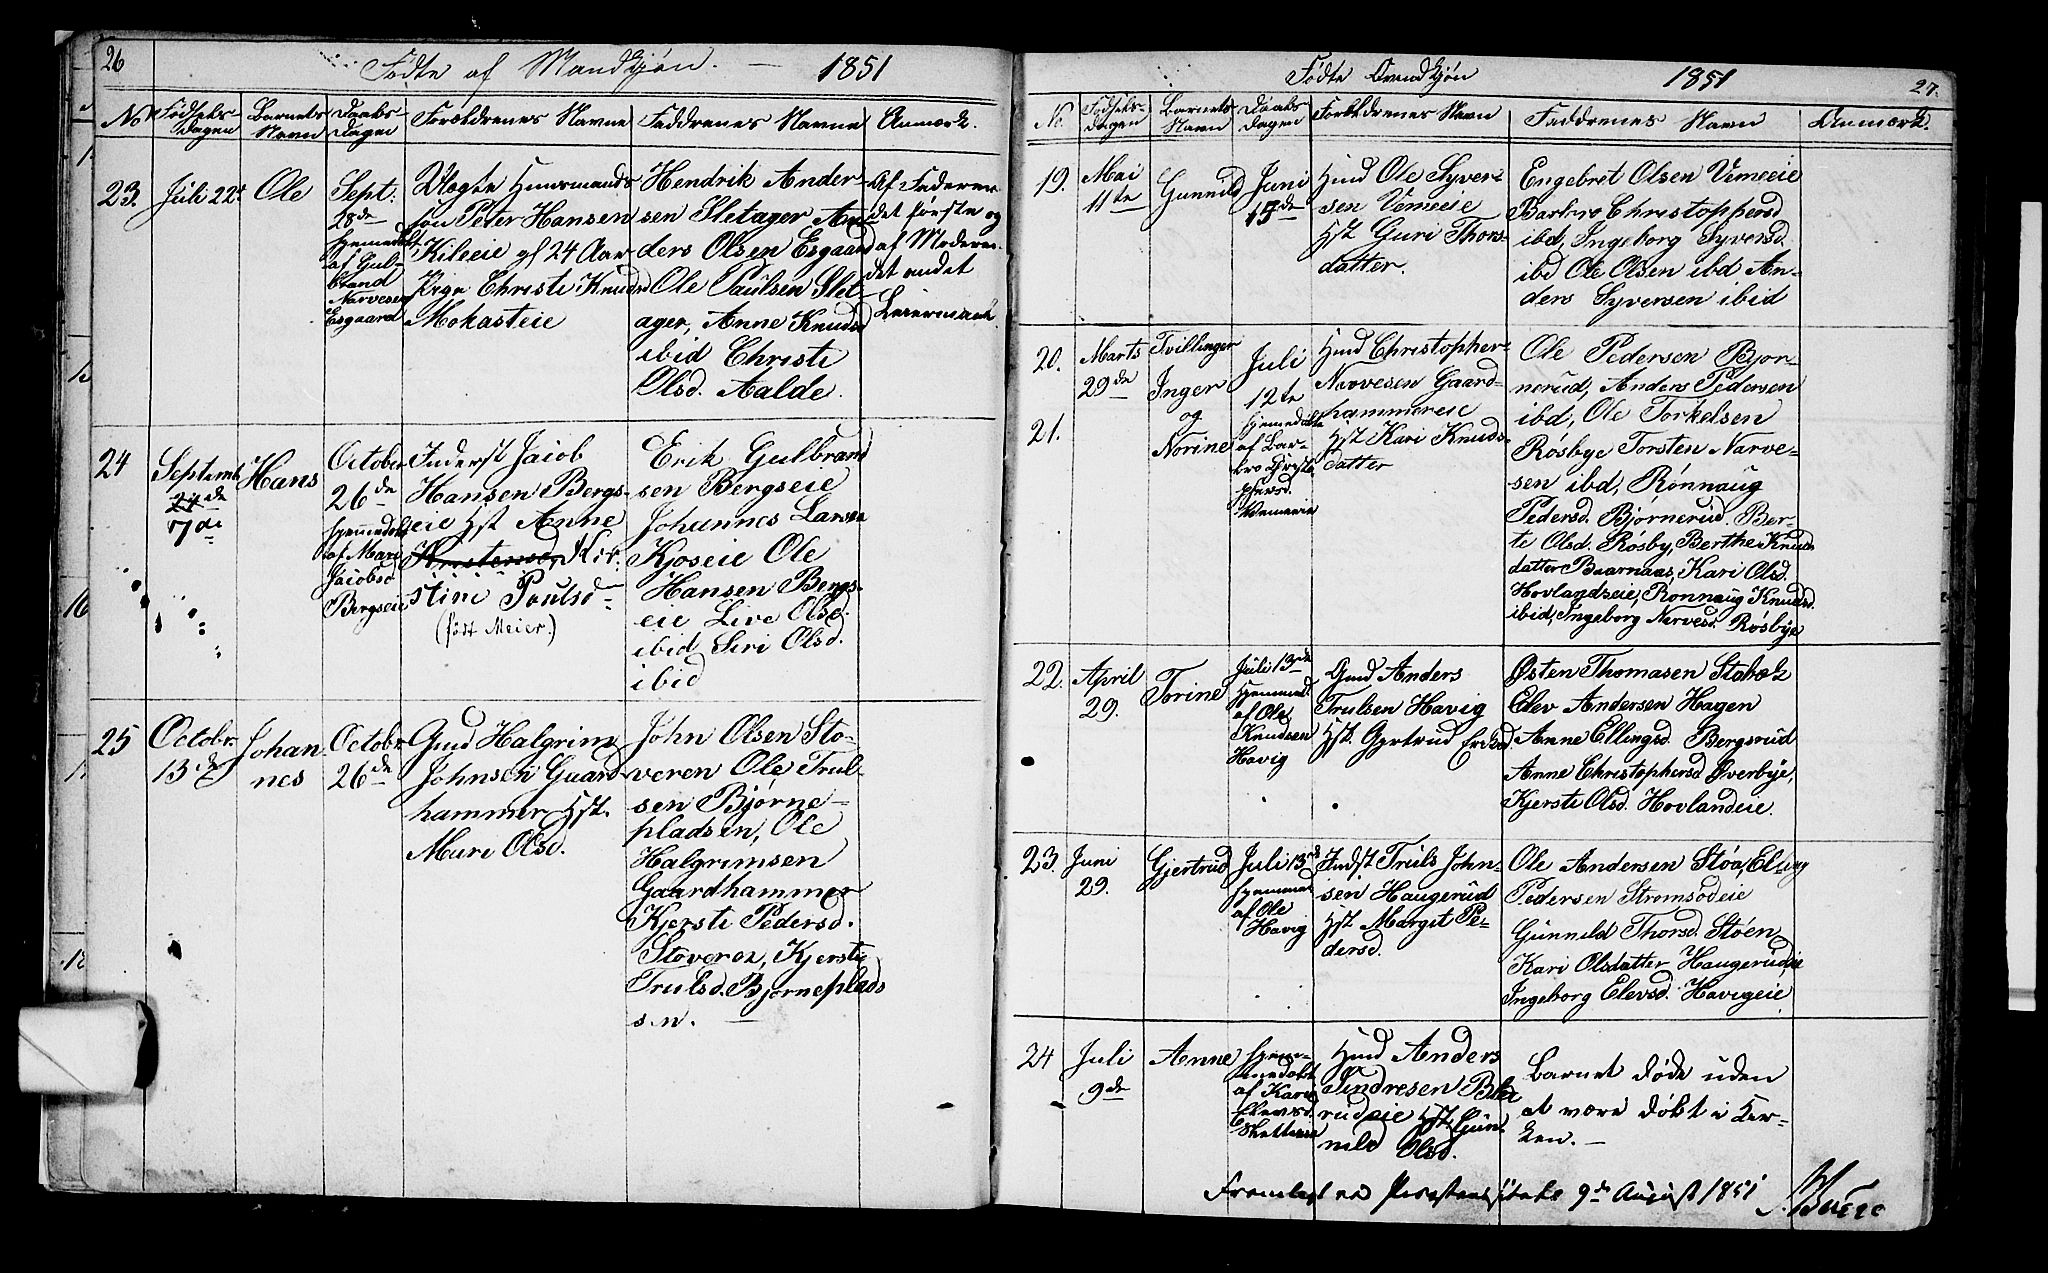 26
Födte af Mandkjön. — 1851
No
Födsels-
dagen
Barnets
Navn
Daabs-
dagen
Foreldrenes Navne
Faddrenes Navne
Anmærk.
23.
Juli 22t
Ole
Sept:
28de
hjemedøbt
af Gul-
brand
Narvesen
Esgaard
Uægte Huusmands-
søn Peter Hansen
Kileeie af 24 Aar
Pige Christi Knudsd
Mokasteie
Hendrik Ander-
sen Sletager An-
ders Olsen Esgaard
Ole Paulsen Slet-
ager, Anne Knudsd
ibid Christi
Olsd. Aalde.
Af Faderen
det første og
af Moderen
det andet
Leiermaal
24
Septemb.
24de
7de
Hans
October
26de
hjemedøbt
af Mari
Jacobsd
Bergseie
Inderst Jaiob
Hansen Bergs-
eie Hst Anne
Kristensd Kir-
stine Poulsd
(født Meier.)
Erik Gulbrand
sen Bergseie
Johannes Larsen
Kjoseie Ole
Hansen Bergs-
eie Live Olsd.
ibid Siri Olsd.
ibid
25
Octobr.
13de
Johan
nes
Octobr.
26de
Gmd Halgrim
Johnsen Guard
hammer Hst.
Mari Olsd.
John Olsen Sto-
veren Ole Trul-
sen Bjørne-
pladsen, Ole
Halgrimsen
Gaardhammer
Kjersti Pedersd.
Stoveren, Kjersti
Trulsd. Bjørneplads
en. —
Födte Qvindkjön 1851
27.
N.
Födsels-
dagen
Barnets
Navn
Daabs
dagen
Forældrenes Navn
Faddrenes Navn
Anmærk.
19.
Mai
11te
Gunnild
Juni
15de
Hmd Ole Syver-
sen Vemeeie
Hst Guri Thors-
datter.
Engebret Olsen Vemeeie
Barbro Christophersd
ibid, Ingeborg Syversd.
ibd Ole Olsen ibd An-
ders Syversen ibid
20.
21.
Marts
29de
Tvillinger
Inger
og
Norine
Juli
12te
hjemedøbte
af Bar-
bro Christo
phersd.
Vemeeie
Hmd Christopher-
Narvesen Gaard-
hammereie
Hst Kari Knuds-
datter
Ole Pedersen Bjør-
nerud, Anders Pedersen
ibd, Ole Torkelsen
Røsbye Torsten Narve-
sen ibd, Rønnaug
Pedersd. Bjørnerud. Ber-
te Olsd. Røsby, Berthe Knuds
datter Baarnaas, Kari Olsd.
Hovlandseie, Rønnaug Knudsd.
ibid, Ingeborg Narvesd. Røsbye
22.
April
29.
Torine
Juli 13de
hjemmed.
af Ole
Knudsen
Havig
Gmd Anders
Trulsen Havig
Hst. Gjertrud Eriksd
Østen Thomasen Stabæk
Elev Andersen Hagen
Anne Ellingsd. Bergsrud
Anne Christophersd Øverbye,
Kjersti Olsd. Hovlandeie.
23
Juni
29.
Gjertrud
Juli 13de
hjemmed
af Ole
Havig
Indst Truls John-
sen Haugerud
Hst Margit Pe-
dersd.
Ole Andersen Støa, Elling
Pedersen Strømsødeie
Gunnild Thorsd. Støen,
Kari Olsdatter Haugerudeie
Ingeborg Elevsd. Havigeie.
24
Juli
9de
Anne
hjem-
medøbt
af Kari
Elevsd
Hmd Anders
Sindresen
rudeie Hst. Gun-
nild Olsd.
Barnet døde uden
at være døbt i Kir-
ken. —
Fremlagt ved 9de August 1851